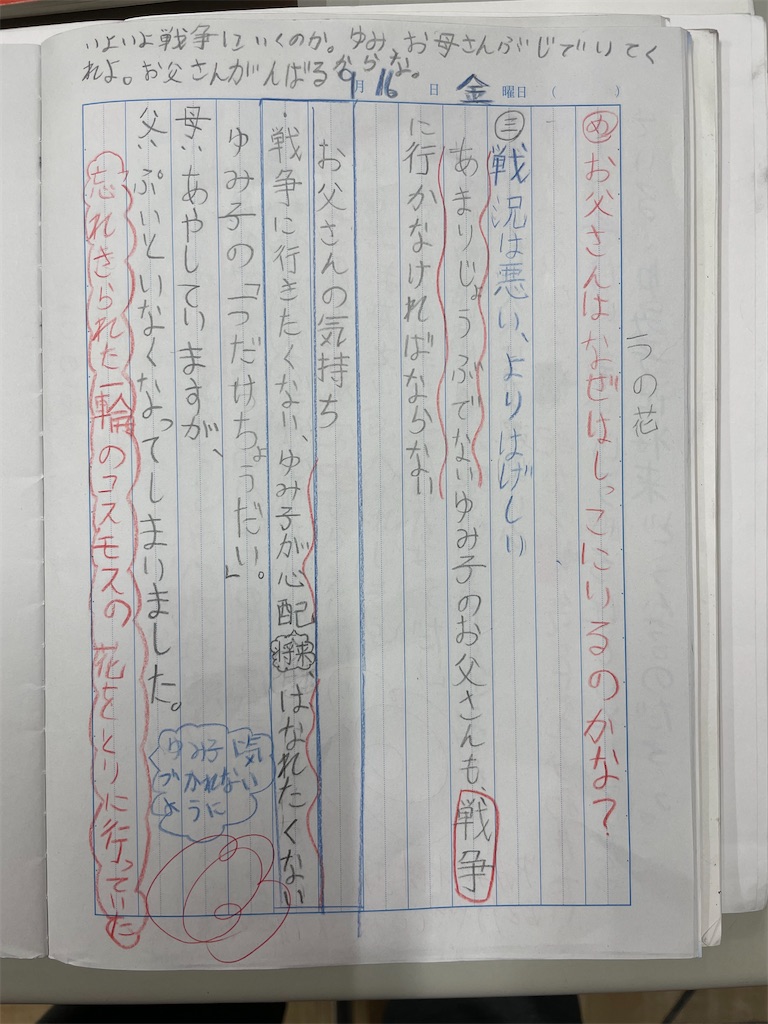 いよいよ戦争にいくのか。ゆみ、お母さんぶじでいてく
れよ。お父さんがんばるからな。
9月16日 金曜日 ( )
一つの花
め お父さんはなぜはしっこにいるのかな?
三 戦況は悪い、よりはげしい
あまりじょうぶでないゆみ子のお父さんも、戦争
に行かなければならない
お父さんの気持ち
・戦争に行きたくない、ゆみ子が心配、将来、はなれたくない
ゆみ子の「一つだけちょうだい。」
母い あやしていますが、
父い ぷいといなくなってしまいました。
忘れさられた一輪のコスモスの花をとりに行っていた
ゆみ子に気
づかれない
ように